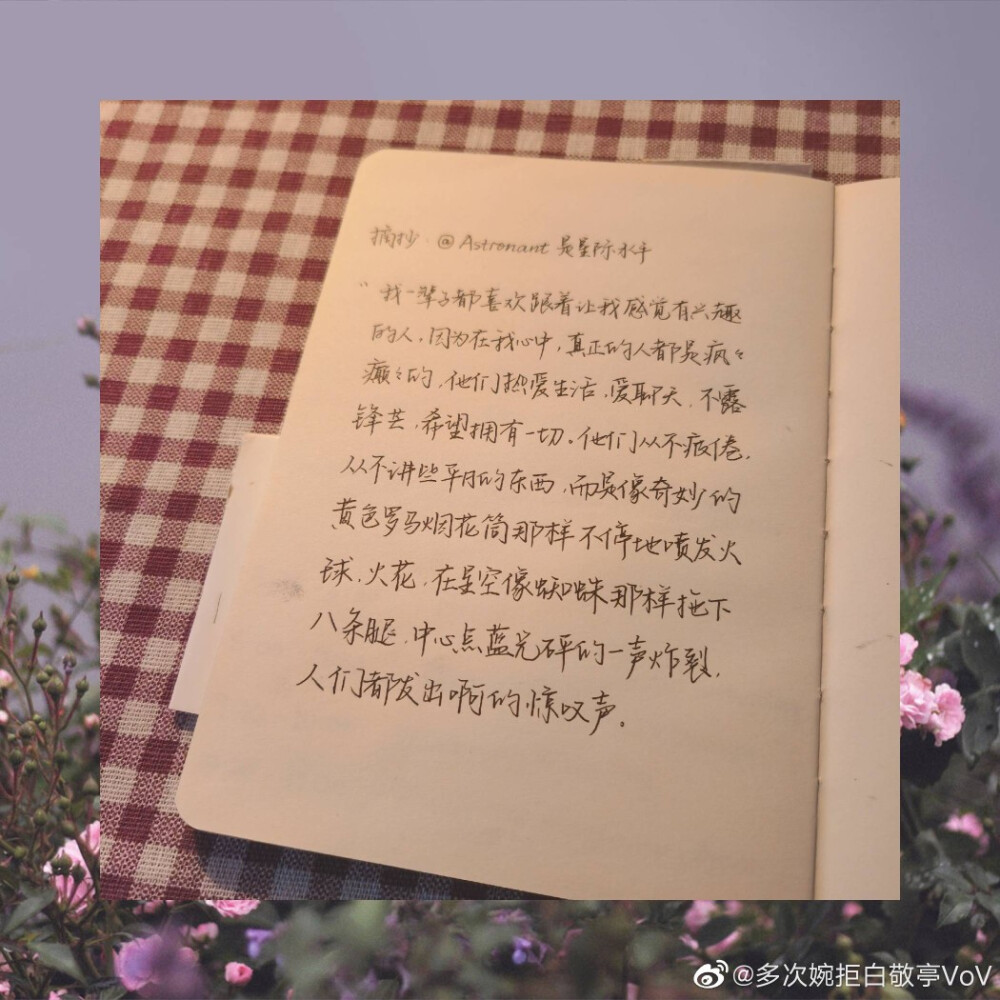 摘抄·@Astronant是星际水手
“我一辈子都喜欢跟着让我感觉有兴趣
的人,因为在我心中,真正的人都是疯々
癫々的,他们热爱生活,爱聊天,不露
锋芒,希望拥有一切。他们从不疲倦,
从不讲些平凡的东西,而是像奇妙的
黄色罗马烟花筒那样不停地喷发火
球,火花,在星空像蜘蛛那样拖下
八条腿,中心点蓝光砰的一声炸裂,
人们都发出啊的惊叹声。
@多次婉拒白敬亭VoV